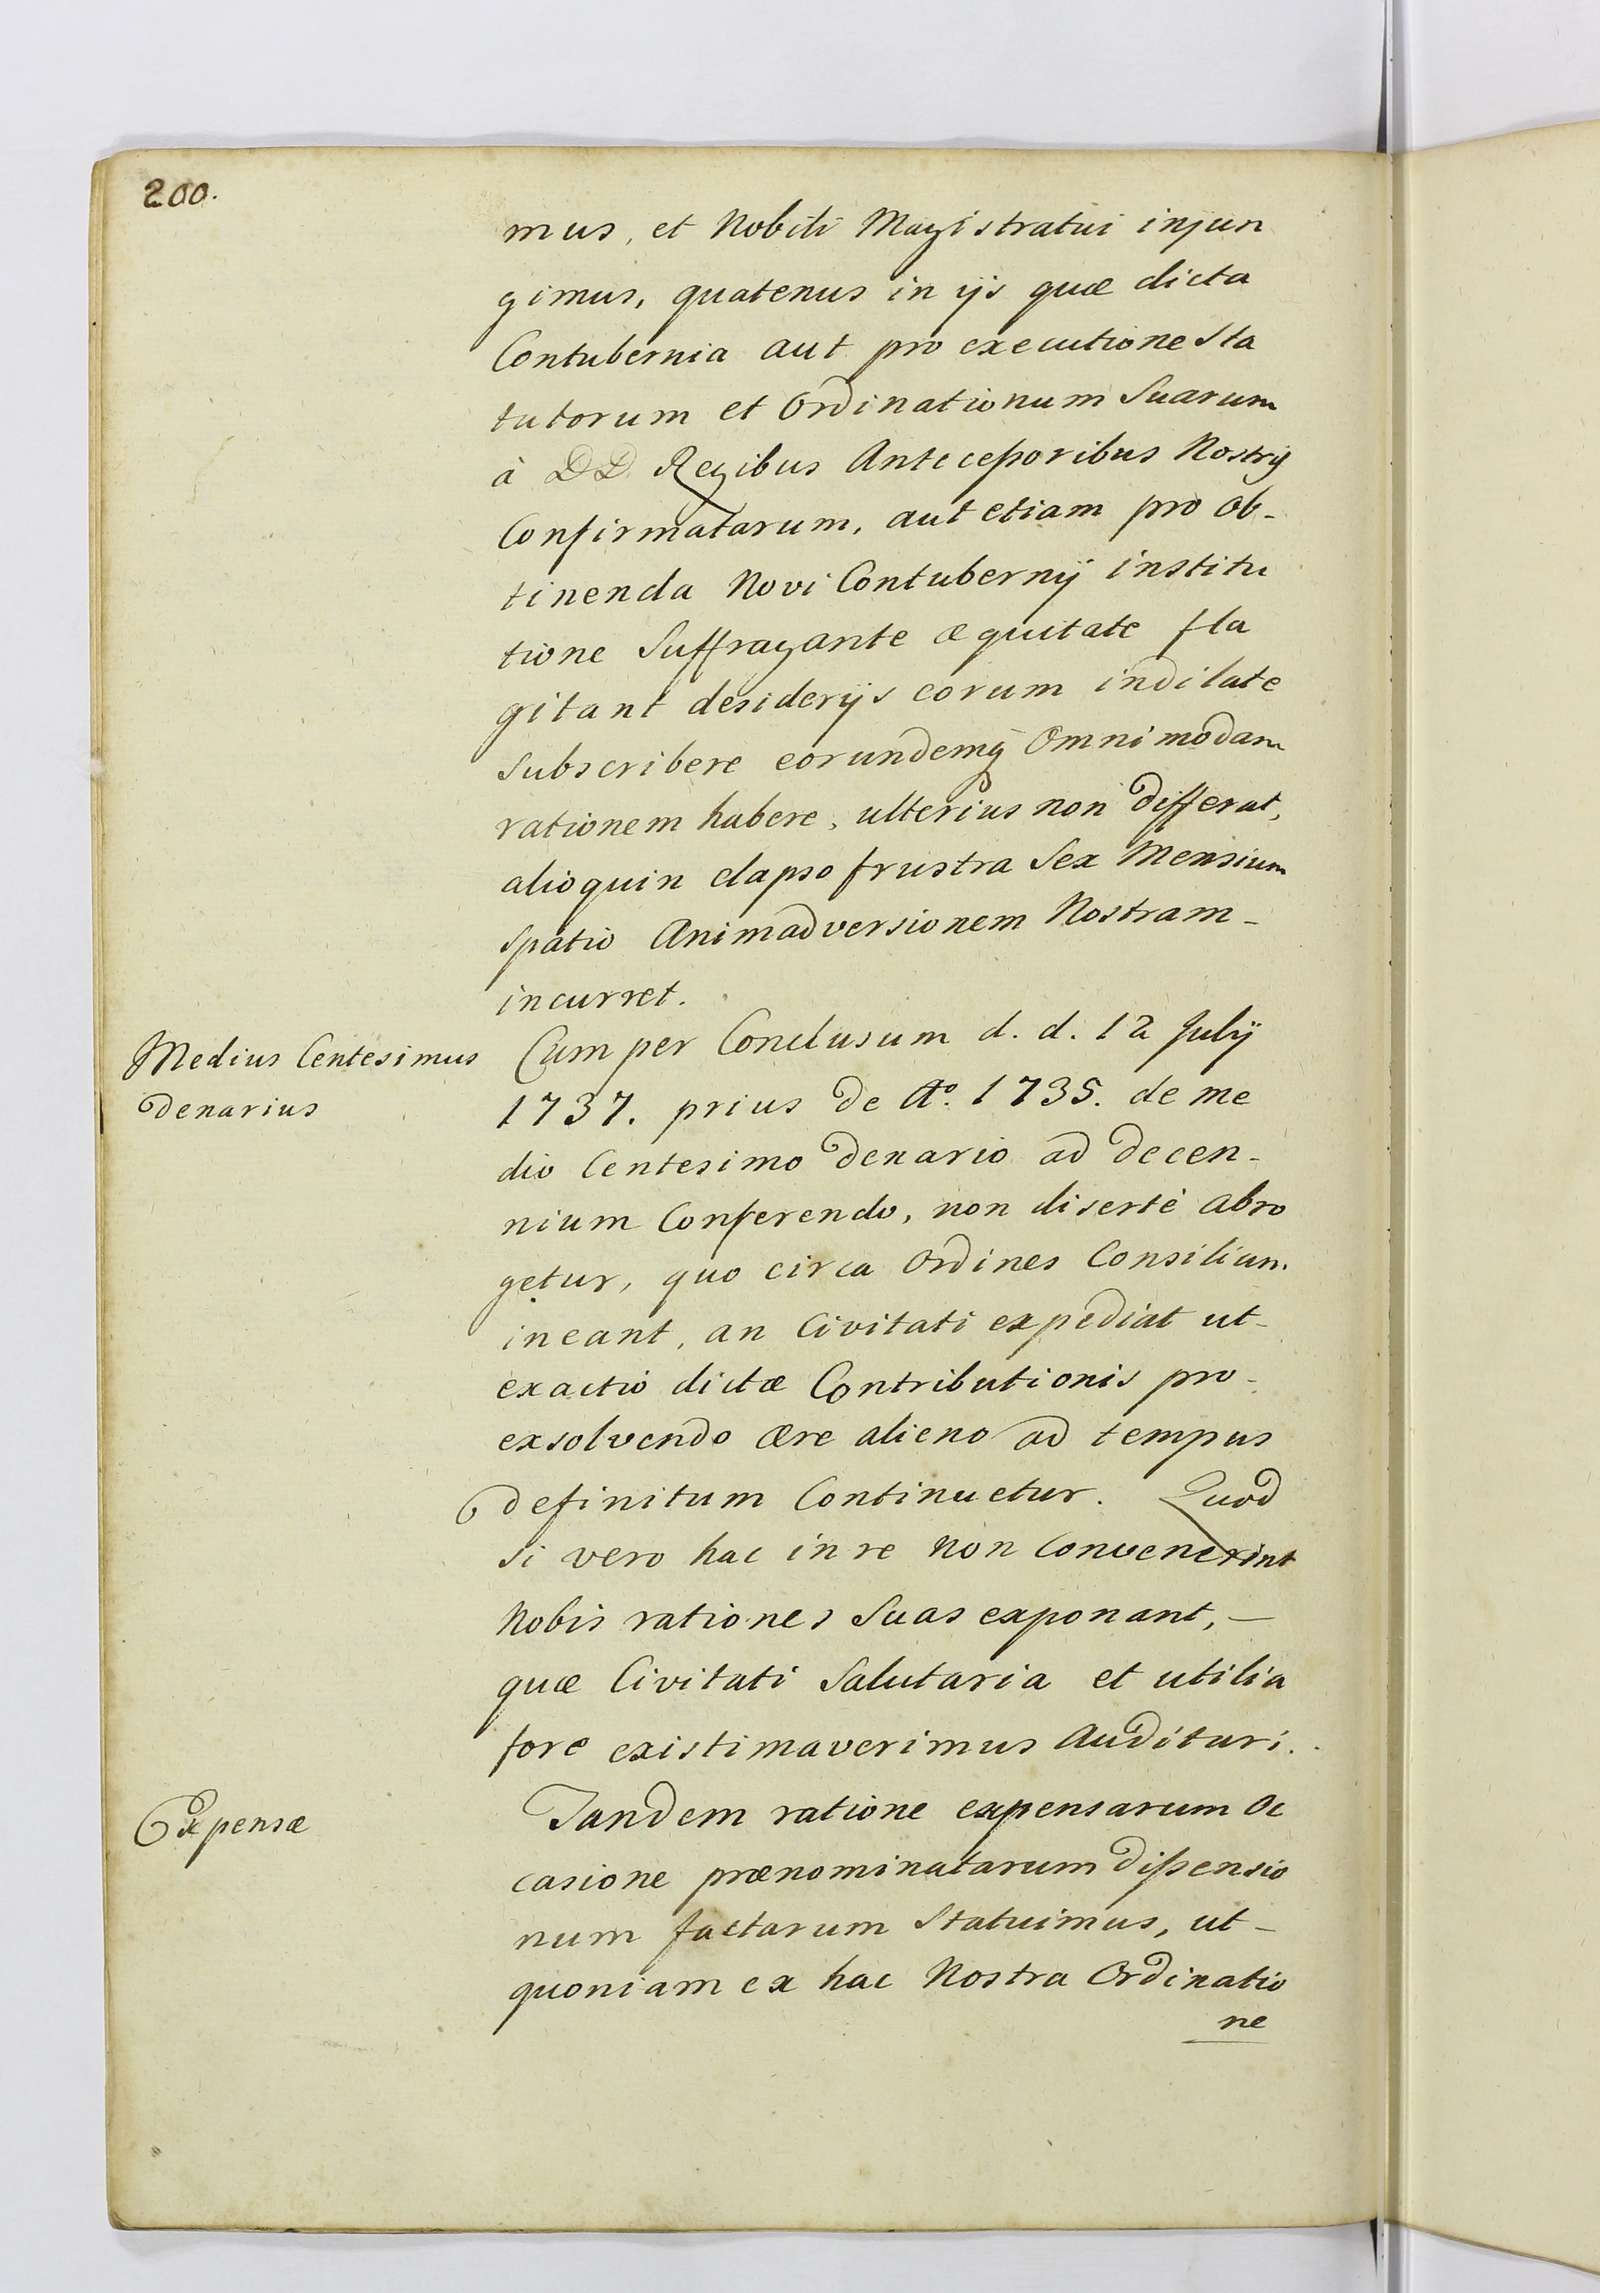 200.
mus, et Nobili Magistratui injun
gimus, quatenus in ijs quæ dicta
Contubernia aut pro executione Sta
tutorum et Ordinationum Suarum
à DD Regibus Antecessoribus Nostrij
Confirmatarum, aut etiam pro ob-
tinenda Novi Contubernij institu
tione Suffragante æquitate fla
gitant desiderijs eorum indilate
subscribere eorundemq Omnimodam
rationem habere, ulterius non differat,
alioquin elapso frustra Sex Mensium
spatio Animadversionem Nostram-
incurret.
Medius Centesimus
denarius
Cum per Conclusum d. d. 12 Julij
1737. prius de Aº. 1735. de me
dio Centesimo denario ad decen-
nium Conferendo, non disertè abro
getur, quo circa Ordines Consilium
ineant, an Civitati expediat ut-
exactio dictæ Contributionis pro-
exsolvendo ære alieno ad tempus
definitum Continuetur. Quod
si vero hac in re non convenerint
Nobis rationes Suas exponant, —
quæ Civitati Salutaria et utilia
fore existimaverimus Audituri.
Expensæ
Tandem ratione expensarum Oc
casione prænominatarum dissensio
num factarum Statuimus, ut-
quoniam ex hac Nostra Ordinatio
ne